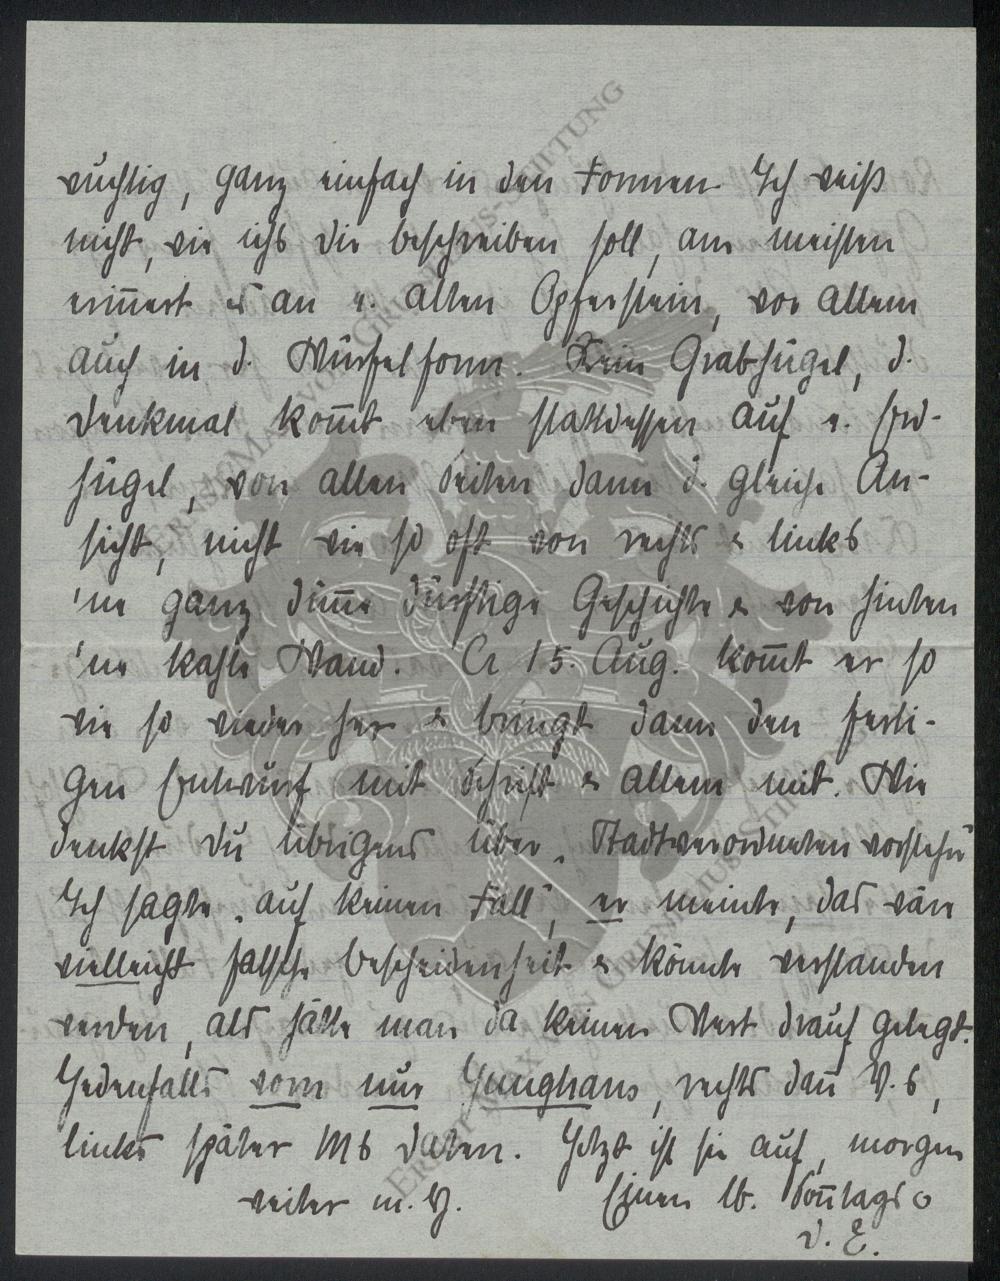 wuchtig, ganz einfach in den Formen. Ich weiß
nicht, wie ichs Dir beschreiben soll, am meisten
erinnert es an e. alten Opferstein, vor allem
auch in d. Würfelform. Kein Grabhügel, d.
Denkmal kom̅t eben stattdessen auf e. Erd-
hügel, von allen Seiten dann d. gleiche An-
sicht, nicht wie so oft von rechts & links
'ne ganz dünne dürftige Geschichte & von hinten
'ne kahle Wand. Ca 15. Aug. kom̅t er so
wie so wieder her & bringt dann den ferti-
gen Entwurf mit Schrift & allem mit. Wie
denkst Du übrigens über „Stadtverordneten vorsteher
Ich sagte „auf keinen Fall", er meinte, das wäre
vielleicht falsche Bescheidenheit & könnte verstanden
werden, als hätte man da keinen Wert drauf gelegt.
Jedenfalls vorn nur Junghans, rechts dan̅ V.s,
links später Ms Daten. Jetzt ist sie auf, morgen
weiter m. H. Einen lb. Son̅tags
D. E.
ERNST MAX VON GRUNELIUS-STIFTUNG
ERNST MAX VON GRUNELIUS-STIFTUNG